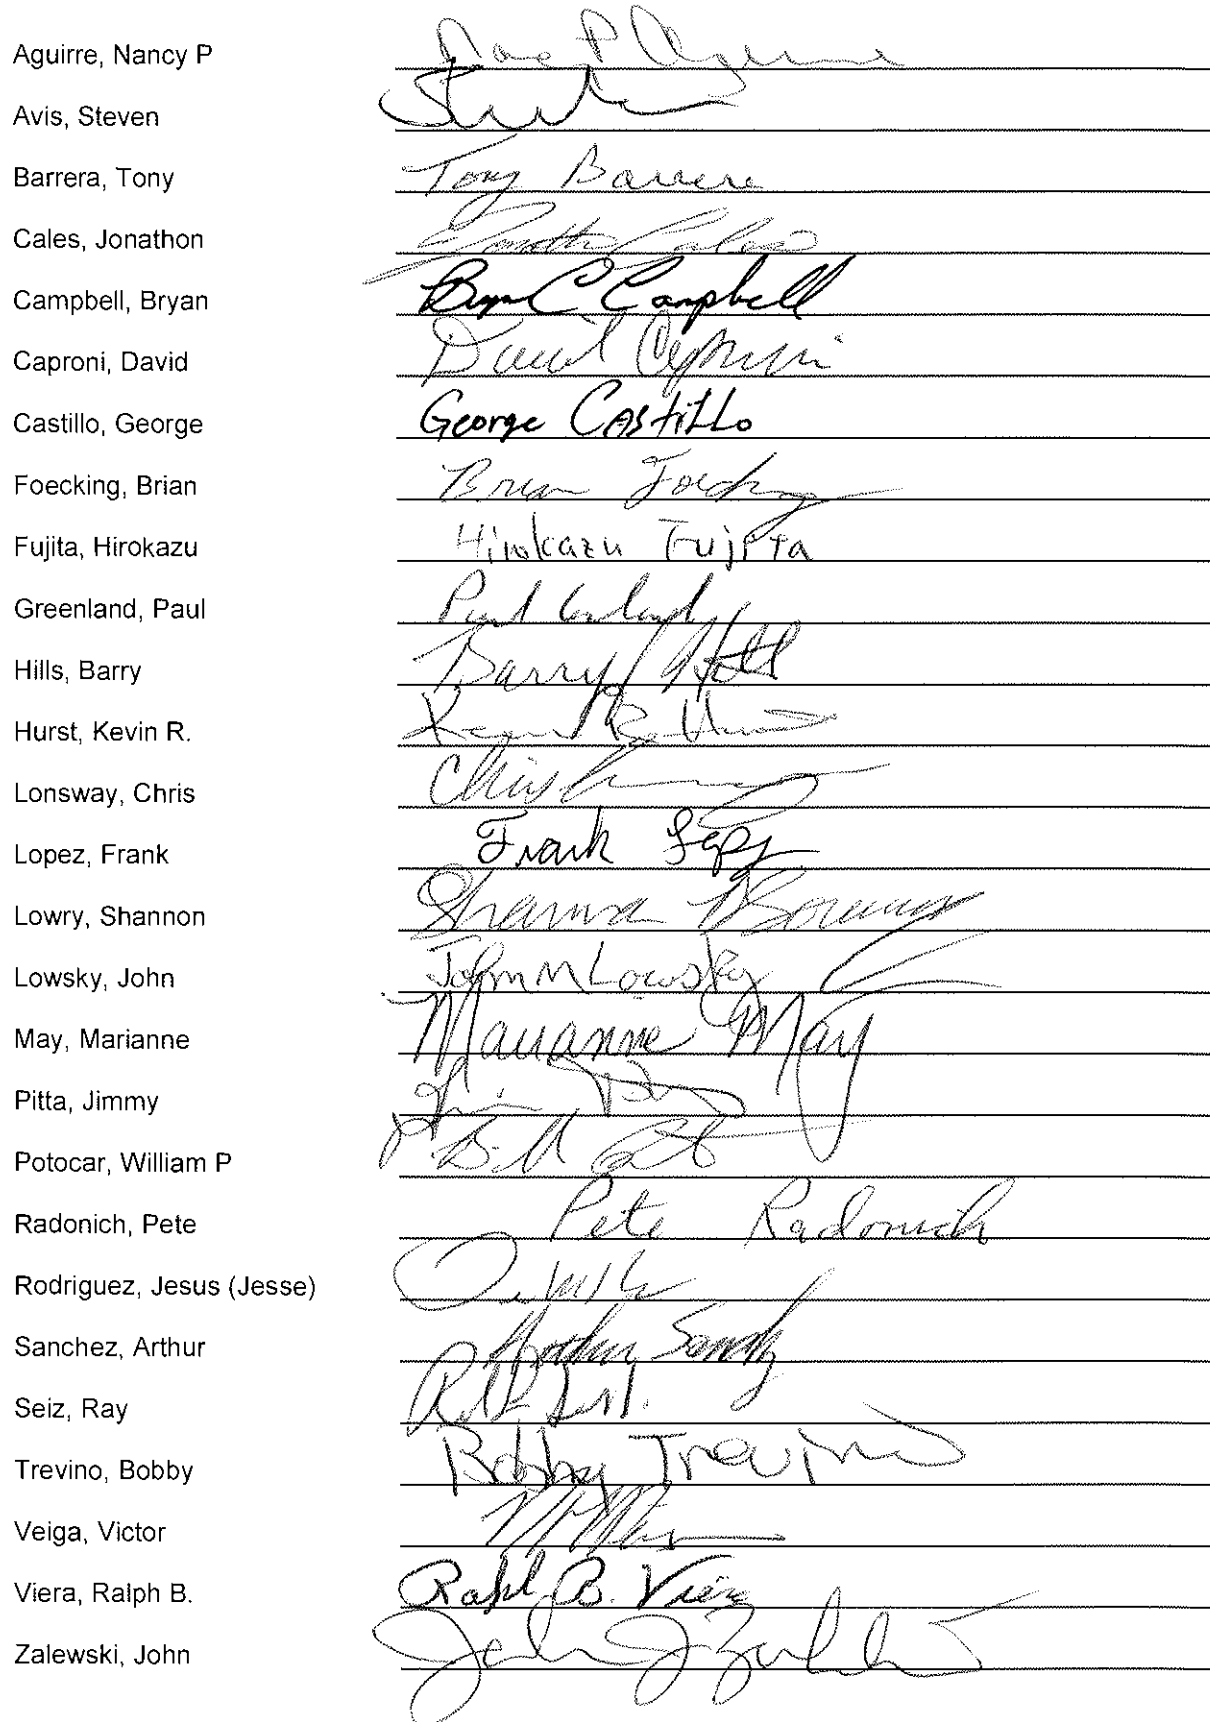 Aguirre, Nancy P
Avis, Steven
Barrera, Tony Tony Barrera
Cales, Jonathon
Campbell, Bryan Bryan C Campbell
Caproni, David David Caproni
Castillo, George George CAStiLLo
Foecking, Brian Brian Foecking
Fujita, Hirokazu Hirokazu Fujita
Greenland, Paul Paul
Hills, Barry Barry Hill
Hurst, Kevin R. Kevin R Hurst
Lonsway, Chris Chris
Lopez, Frank Frank Lopez
Lowry, Shannon Shannon
Lowsky, John John M Lowsky
May, Marianne Marianne May
Pitta, Jimmy
Potocar, William P Bill
Radonich, Pete Pete Radonich
Rodriguez, Jesus (Jesse)
Sanchez, Arthur Arthur Sanchez
Seiz, Ray
Trevino, Bobby Bobby Trevino
Veiga, Victor
Viera, Ralph B. Ralph B. Viera
Zalewski, John John J